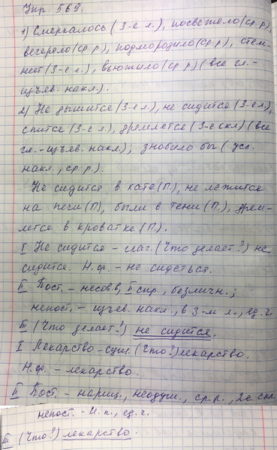 Упр 569.
1) Смеркалось (3-е л.), посветлело (ср.р),
вечерело (ср р), подморозило (ср.р), стем-
неет (3-е л.), вьюжило (ср р) (все гл.-
изъяв. накл.)
2) Не дышится (3-е л), не сидится (3-е л),
спится (3-е л), дремлется (3-е скл) (все
гл.-изъяв. накл), знобило бы (усл.
накл, ср.р).
Не сидится в хате (П.), не лежится
на печи (П), были в тени (П.),
лется в кроватке (П).
I Не сидится - глаг. (Что делает?) не
сидится. Н.ф. - не сидеться.
II Пост. - несов в, II спр, безличн.;
непост. - изъяв. накл., в 3-м л., ед.ч
III (Что делает?) не сидится.
I Лекарство - сущ. (Что?) лекарство.
Н.ф. - лекарство.
II Пост. - нариц., неодуш., ср.р., 2е скл
непост. - И.п., ед.ч.
III (Что?) лекарство.